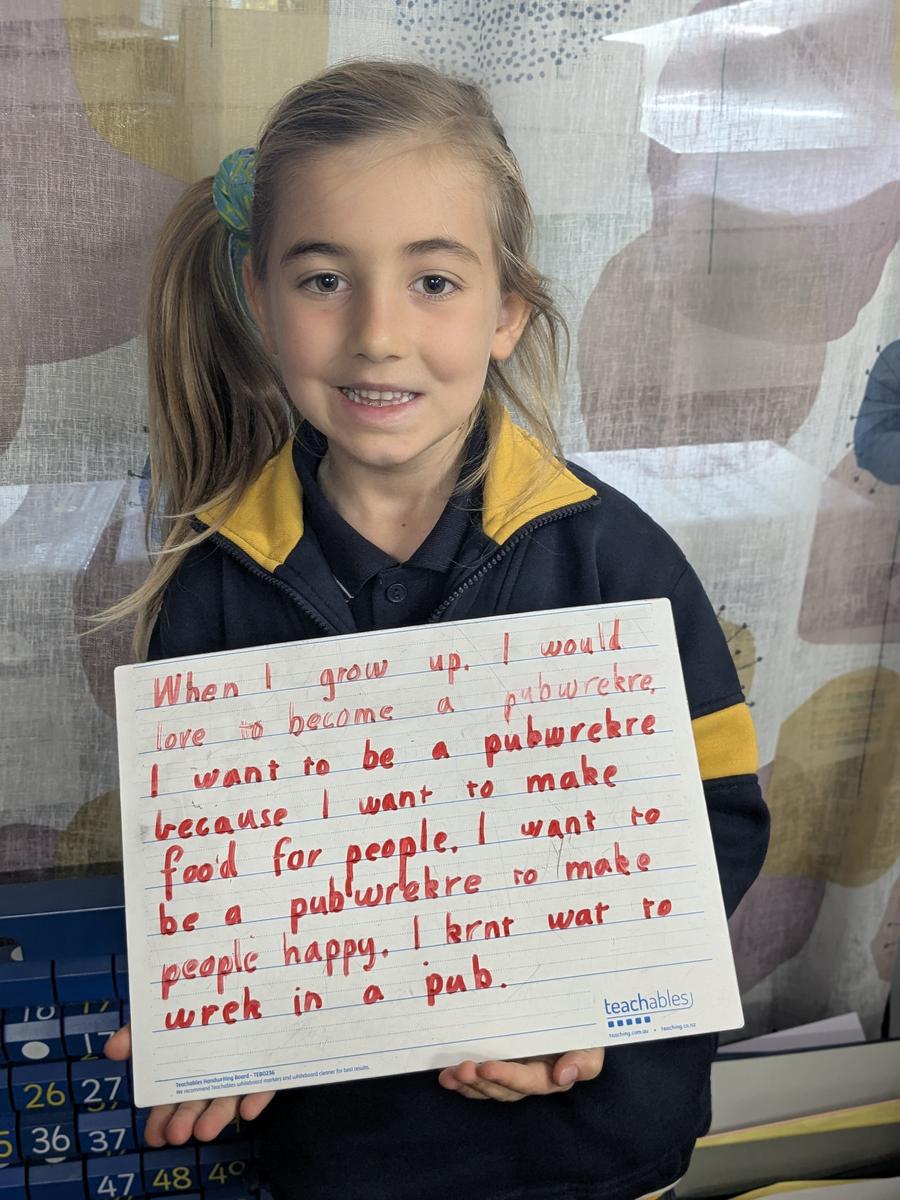 When I grow up. I would
love to become a pubwrekre.
I want to be a pubwrekre
because I want to make
food for people. I want to
be a pubwrekre to make
people happy. I krnt wat to
wrek in a pub.
teachables
teaching.com.au • teaching.co.nz
Teachables Handwriting Board - TEB0236
We recommend Teachables whiteboard markers and whiteboard cleaner for best results.
16 17
26 27
36 37
47 48 49